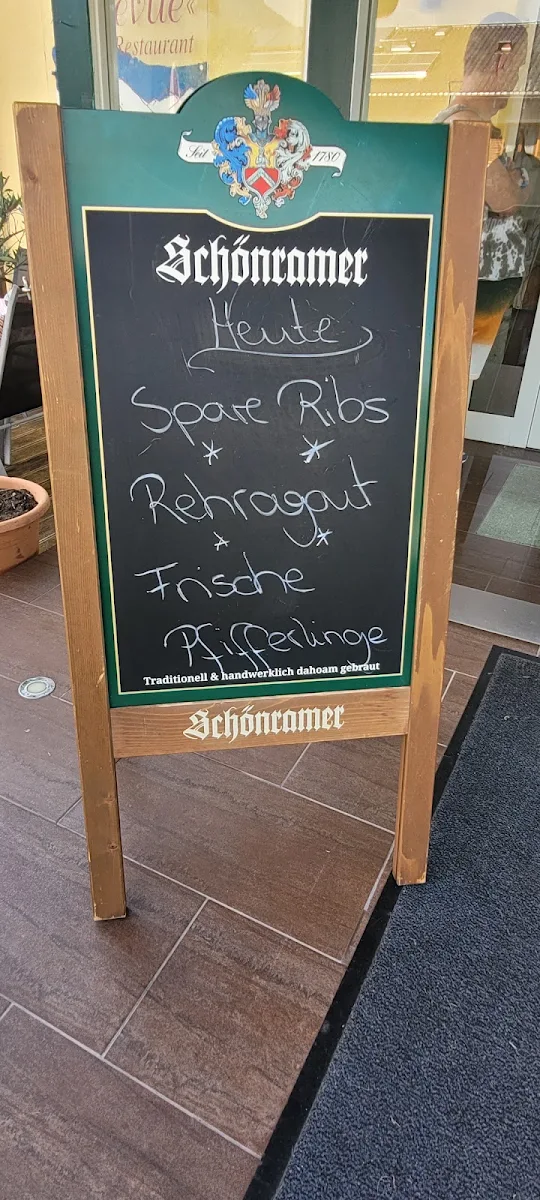 evue«
Restaurant
Seit 1780
Schönramer
Heute
Spare Ribs
* *
Rehragout
* *
Frische
Pfifferlinge
Traditionell & handwerklich dahoam gebraut
Schönramer